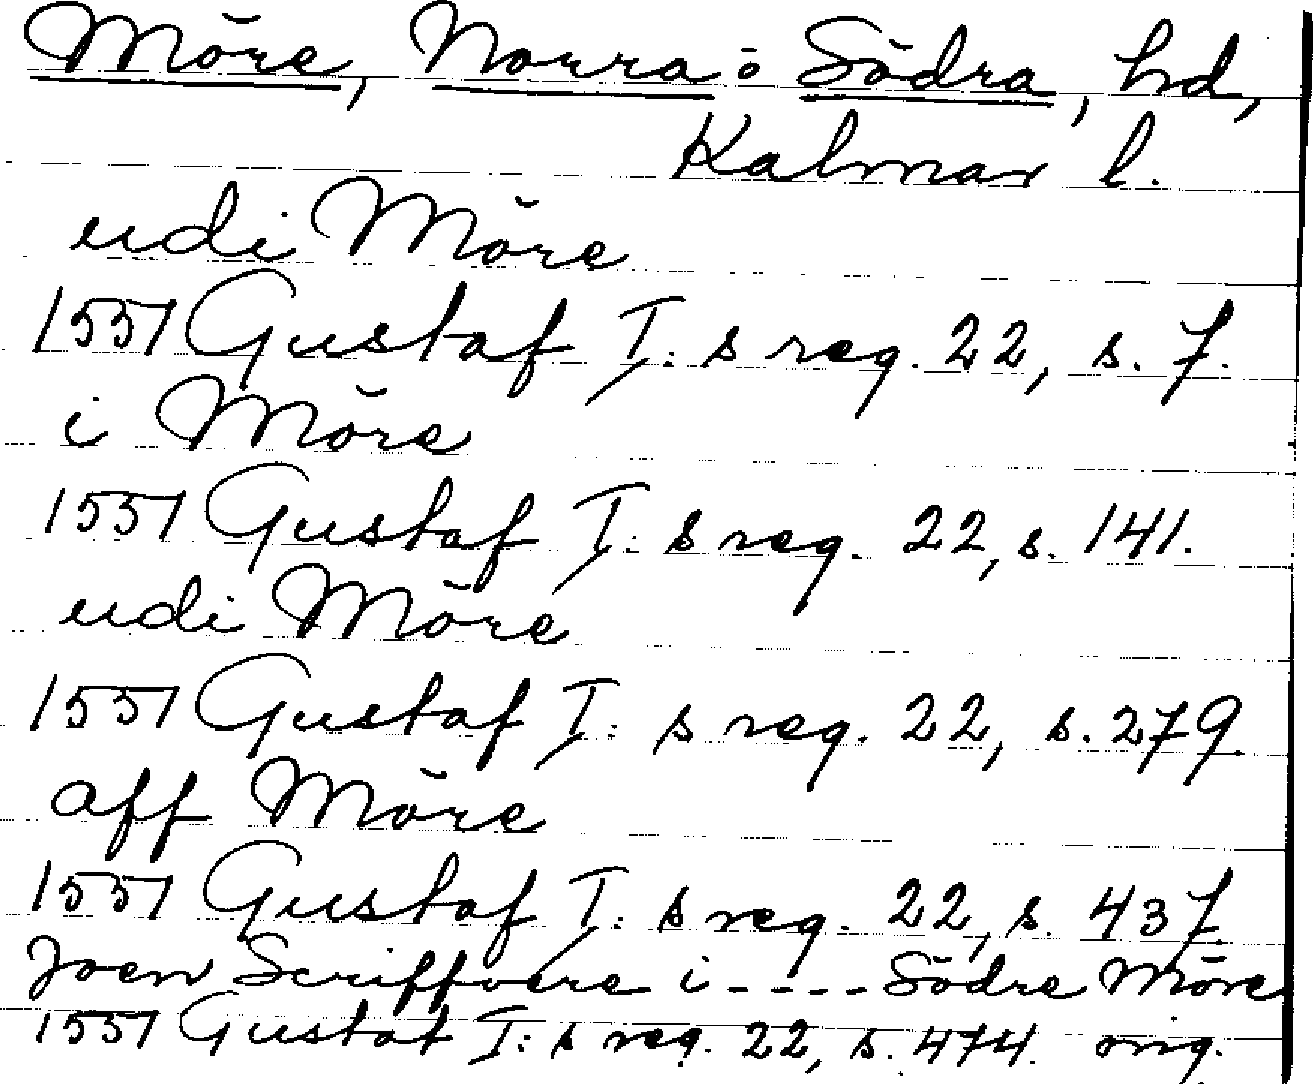 Möre, Norra o Södra, hd,
Kalmar l.
udi Möre
1551 Gustaf I:s reg. 22, s. 7.
i Möre
1551 Gustaf I:s reg. 22, s. 141.
udi Möre
1551 Gustaf I:s reg. 22, s. 279
aff Möre
1551 Gustaf I:s reg. 22, s. 437.
Joen Scriffvere i - - - - Södre Möre
1551 Gustaf I:s reg. 22, s. 474. orig.